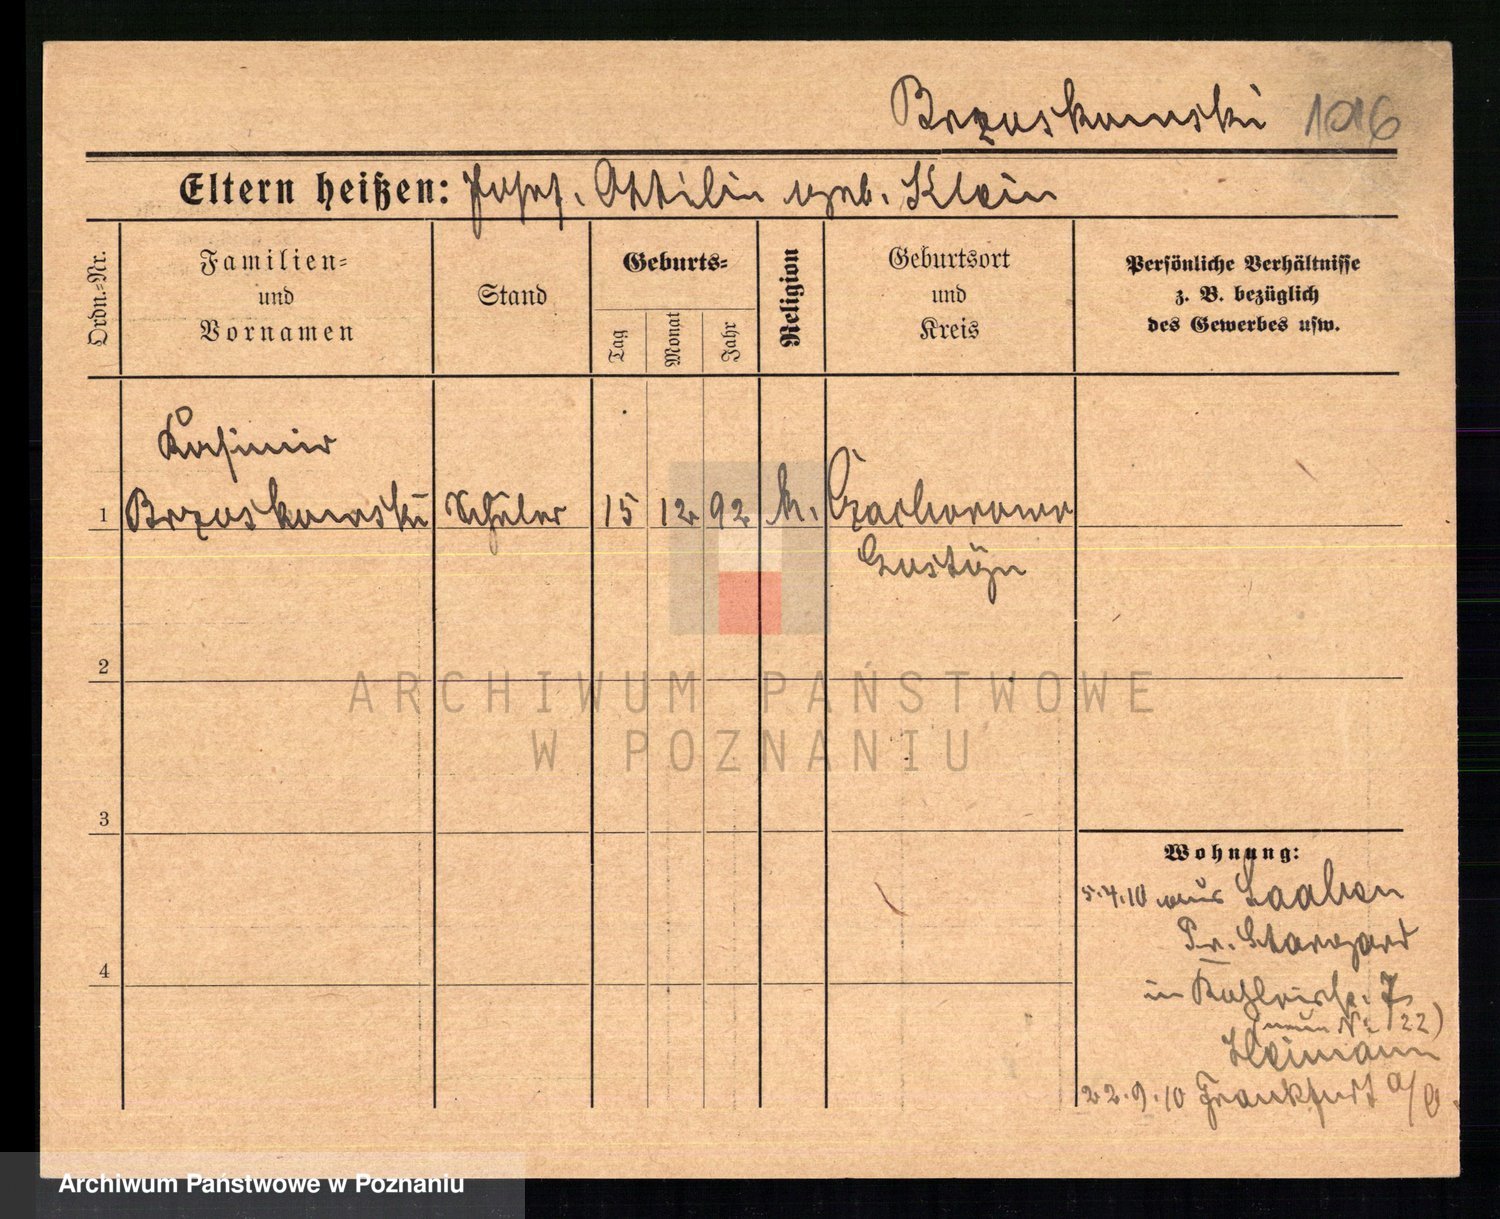 Brzoskowski 1016
Eltern heißen: Josef, Ottilie geb. Klein
Ordn.-Nr.
Familien-
und
Vornamen
Stand
Geburts-
Tag
Monat
Jahr
Religion
Geburtsort
und
Kreis
Persönliche Verhältnisse
z. B. bezüglich
des Gewerbes usw.
Kasimir
1 Brzoskowski Schüler 15 12 92 k.
Gostyn
2
ARCHIWUM PAŃSTWOWE
W POZNANIU
3
Wohnung:
5.4.10 aus Laaben
Pr. Stargard
4
in 7
(neue Nr 22)
Heimann
22.9.10 Frankfurt a/O.
Archiwum Państwowe w Poznaniu